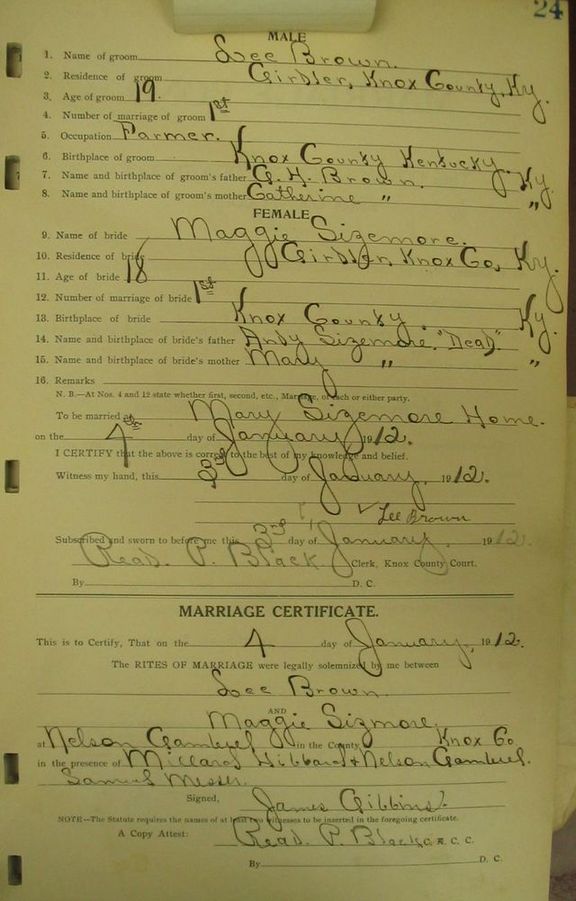 24
MALE
1. Name of groom Lee Brown.
2. Residence of groom Girdler, Knox County, Ky.
3. Age of groom 19.
4. Number of marriage of groom 1st
5. Occupation Farmer.
6. Birthplace of groom Knox County Kentucky.
7. Name and birthplace of groom's father G. H. Brown. Ky.
8. Name and birthplace of groom's mother Catherine " "
FEMALE
9. Name of bride Maggie Sizemore.
10. Residence of bride Girdler, Knox Co, Ky.
11. Age of bride 18
12. Number of marriage of bride 1st
13. Birthplace of bride Knox County Ky.
14. Name and birthplace of bride's father Andy Sizemore. "Dead".
15. Name and birthplace of bride's mother Mary " "
16. Remarks
N. B.—At Nos. 4 and 12 state whether first, second, etc., Marriage, of each or either party.
To be married at Mary Sizemore Home.
on the 4 day of January 1912.
I CERTIFY that the above is correct to the best of my knowledge and belief.
Witness my hand, this 3rd day of January, 1912.
Lee Brown
Subscribed and sworn to before me this 3rd day of January, 1912.
Read. P. Black Clerk, Knox County Court.
By D. C.
MARRIAGE CERTIFICATE.
This is to Certify, That on the 4 day of January, 1912.
The RITES OF MARRIAGE were legally solemnized by me between
Lee Brown
AND
Maggie Sizmore.
at Nelson Gambrel in the County Knox Co
in the presence of Millard Hibbard & Nelson Gambrel.
Samuel Messer.
Signed, James Gibbins.
NOTE—The Statute requires the names of at least two witnesses to be inserted in the foregoing certificate.
A Copy Attest: Read. P. Black C. K. C. C.
By D. C.